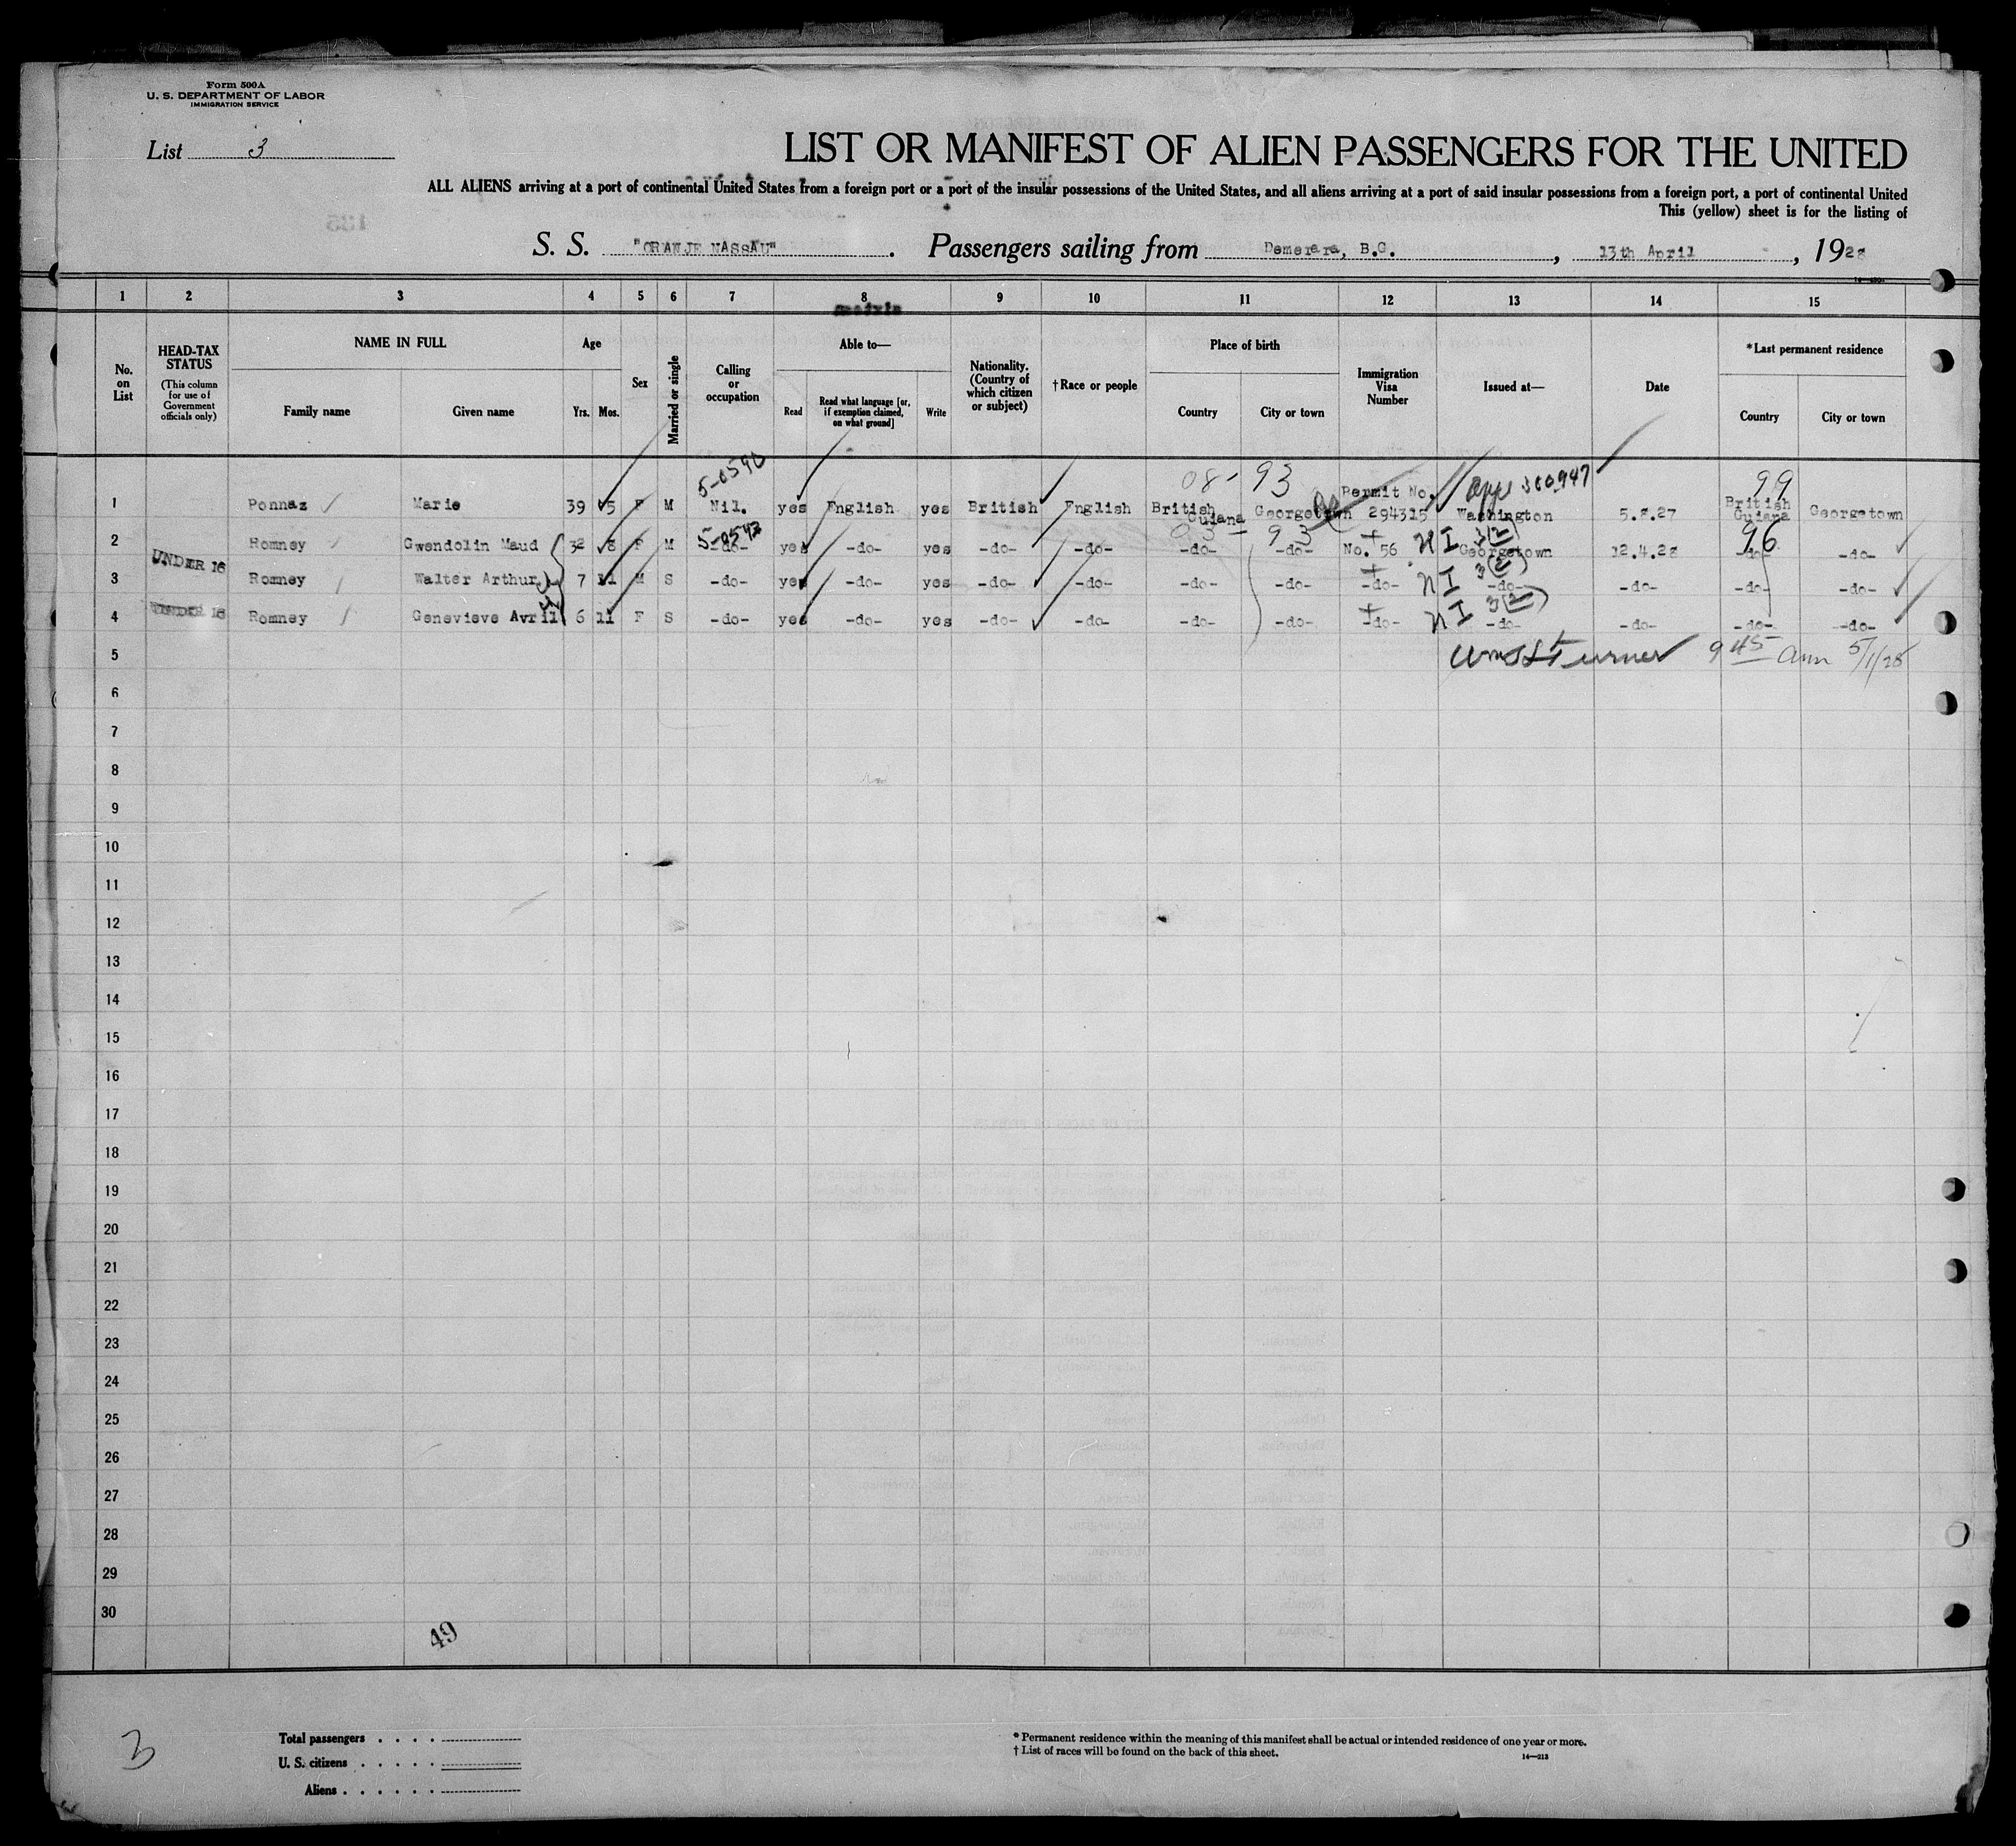 Form 500A
U. S. DEPARTMENT OF LABOR
IMMIGRATION SERVICE
List 3
LIST OR MANIFEST OF ALIEN PASSENGERS FOR THE UNITED
ALL ALIENS arriving at a port of continental United States from a foreign port or a port of the insular possessions of the United States, and all aliens arriving at a port of said insular possessions from a foreign port, a port of continental United
This (yellow) sheet is for the listing of
S. S. "ORANJE NASSAU". Passengers sailing from Demerara, B.G., 13th April, 1928
1 2 3 4 5 6 7 8 9 10 11 12 13 14 15
No. on List
HEAD-TAX STATUS
(This column for use of Government officials only)
NAME IN FULL
Family name Given name
Age
Yrs. Mos.
Sex
Married or single
Calling or occupation
Able to—
Read
Read what language [or, if exemption claimed, on what ground]
Write
Nationality. (Country of which citizen or subject)
†Race or people
Place of birth
Country City or town
Immigration Visa Number
Issued at—
Date
*Last permanent residence
Country City or town
5-0590 08- 93 Permit No. 99
1 Ponnaz Marie 39 5 F M Nil. yes English yes British English British Guiana Georgetown 294315 Washington 5.8.27 British Guiana Georgetown
5-0542 03 93 NI 3(2) 96
2 Romney Gwendolin Maud 32 8 F M -do- yes -do- yes -do- -do- -do- -do- No. 56 Georgetown 12.4.28 -do- -do-
UNDER 16
3 Romney Walter Arthur 7 11 M S -do- yes -do- yes -do- -do- -do- -do- -do- NI 3(2) -do- -do- -do- -do-
UNDER 16
4 Romney Genevieve Avril 6 11 F S -do- yes -do- yes -do- -do- -do- -do- -do- NI 3(2) -do- -do- -do- -do-
5 Turner 9 45 am 5/1/28
6
7
8
9
10
11
12
13
14
15
16
17
18
19
20
21
22
23
24
25
26
27
28
29
30
49
3
Total passengers . . . .
U. S. citizens . . . . .
Aliens . . . . . .
* Permanent residence within the meaning of this manifest shall be actual or intended residence of one year or more.
† List of races will be found on the back of this sheet.
14—213